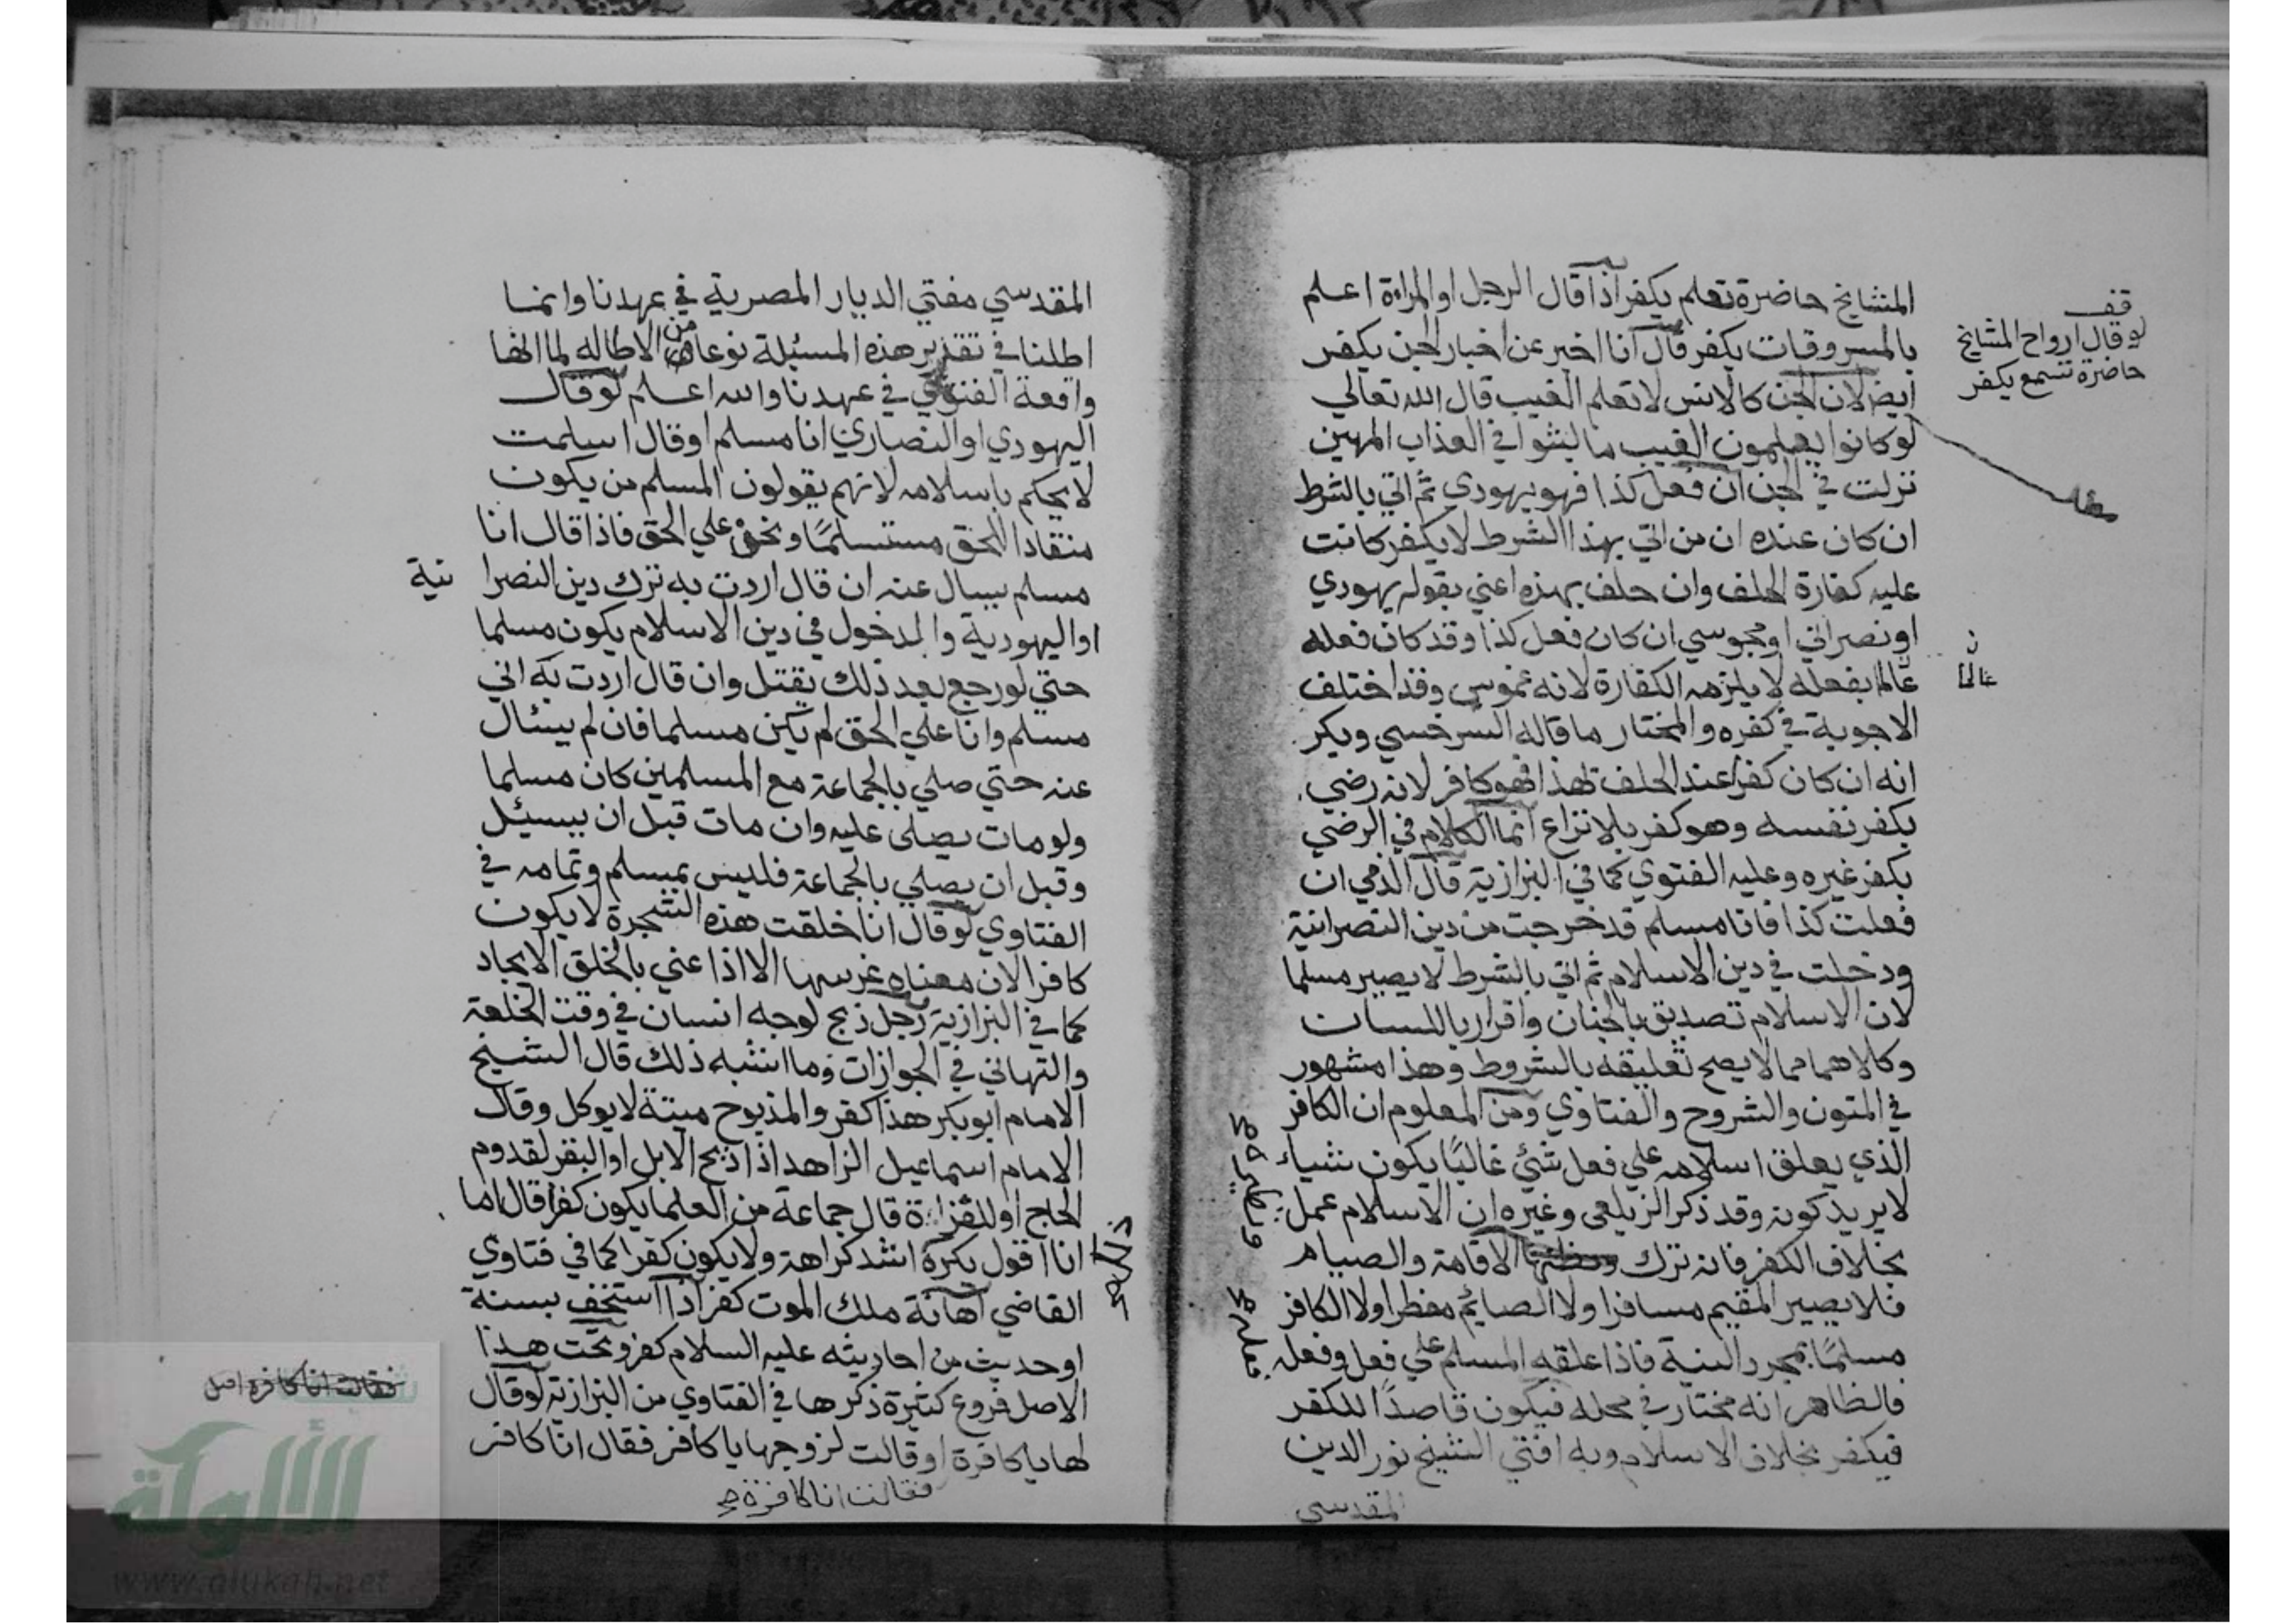 المشايخ حاضرة تعلم يكفر اذا قال الرجل او المراءة اعلم
بالمسروقات يكفر قال انا اخبر عن اخبار الجن يكفر
ايضا لان الجن كالانس لا تعلم الغيب قال الله تعالي
لو كانوا يعلمون الغيب ما لبثوا في العذاب المهين
نزلت في الجن ان فعل كذا فهو يهودي ثم اتي بالشرط
ان كان عنده ان من اتي بهذا الشرط لا يكفر كانت
عليه كفارة الحلف وان حلف بهذه اعني بقوله يهودي
او نصراني او مجوسي ان كان فعل كذا وقد كان فعله
عالما بفعله لا يلزمه الكفارة لانه غموس وقد اختلف
الاجوبة في كفره والمختار ما قاله السرخسي وبكر
انه ان كان كفرا عند الحلف لهذا فهو كافر لانه رضي
بكفر نفسه وهو كفر بلا نزاع انما الكلام في الرضي
بكفر غيره وعليه الفتوي كما في البزازية قال الذمي ان
فعلت كذا فانا مسلم قد خرجت من دين النصرانية
ودخلت في دين الاسلام ثم اتي بالشرط لا يصير مسلما
لان الاسلام تصديق بالجنان واقرار باللسان
وكلاهما مما لا يصح تعليقه بالشروط وهذا مشهور
في المتون والشروح والفتاوي ومن المعلوم ان الكافر
الذي يعلق اسلامه علي فعل شئ غالبًا يكون شياء
لا يريد كونه وقد ذكر الزيلعي وغيره ان الاسلام عمل
بخلاف الكفر فانه ترك الاقامة والصيام
فلا يصير المقيم مسافرا ولا الصايم مفطرا ولا الكافر
مسلمًا بمجرد النية فاذا علقه المسلم علي فعل وفعله
فالظاهر انه مختار في محله فيكون قاصدًا للكفر
فيكفر بخلاف الاسلام وبه افتي الشيخ نور الدين
المقدسي
قف
لو قال ارواح المشايخ
حاضرة تسمع يكفر
ن
عالما
المقدسي مفتي الديار المصرية في عهدنا وانما
اطلنا في تقدير هذه المسئلة نوعا من الاطاله لما انها
واقعة الفتوي في عهدنا والله اعلم لو قال
اليهودي او النصاري انا مسلم او قال اسلمت
لا يحكم باسلامه لانهم يقولون المسلم من يكون
منقادا للحق مستسلمًا ونحن علي الحق فاذا قال انا
مسلم يسال عنه ان قال اردت به ترك دين النصرا نية
او اليهودية والدخول في دين الاسلام يكون مسلما
حتي لو رجع بعد ذلك يقتل وان قال اردت به اني
مسلم وانا علي الحق لم يكن مسلما فان لم يسئال
عنه حتي صلي بالجماعة مع المسلمين كان مسلما
ولو مات يصلى عليه وان مات قبل ان يسئيل
وقبل ان يصلي بالجماعة فليس بمسلم وتمامه في
الفتاوي لو قال انا خلقت هذه الشجرة لا يكون
كافرا لان معناه غرسها الا اذا عني بالخلق الايجاد
كما في البزازية رجل ذبح لوجه انسان في وقت الخلعة
والتهاني في الجوازات وما اشبه ذلك قال الشيخ
الامام ابو بكر هذا كفر والمذبوح ميتة لا يوكل وقال
الامام اسماعيل الزاهد اذا ذبح الابل او البقر لقدوم
الحاج او للغزاة قال جماعة من العلما يكون كفرا قال اما
انا اقول يكره اشد كراهة ولا يكون كفرا كما في فتاوي
القاضي اهانة ملك الموت كفر اذا استخف بسنة
او حديث من احاديثه عليه السلام كفر وتحت هذا
الاصل فروع كثيرة ذكرها في الفتاوي من البزازية لو قال
لها يا كافرة او قالت لزوجها يا كافر فقال انا كافر
فقالت انا كافرة صح
فقالت انا كافره اصل
الألوكة
www.alukah.net